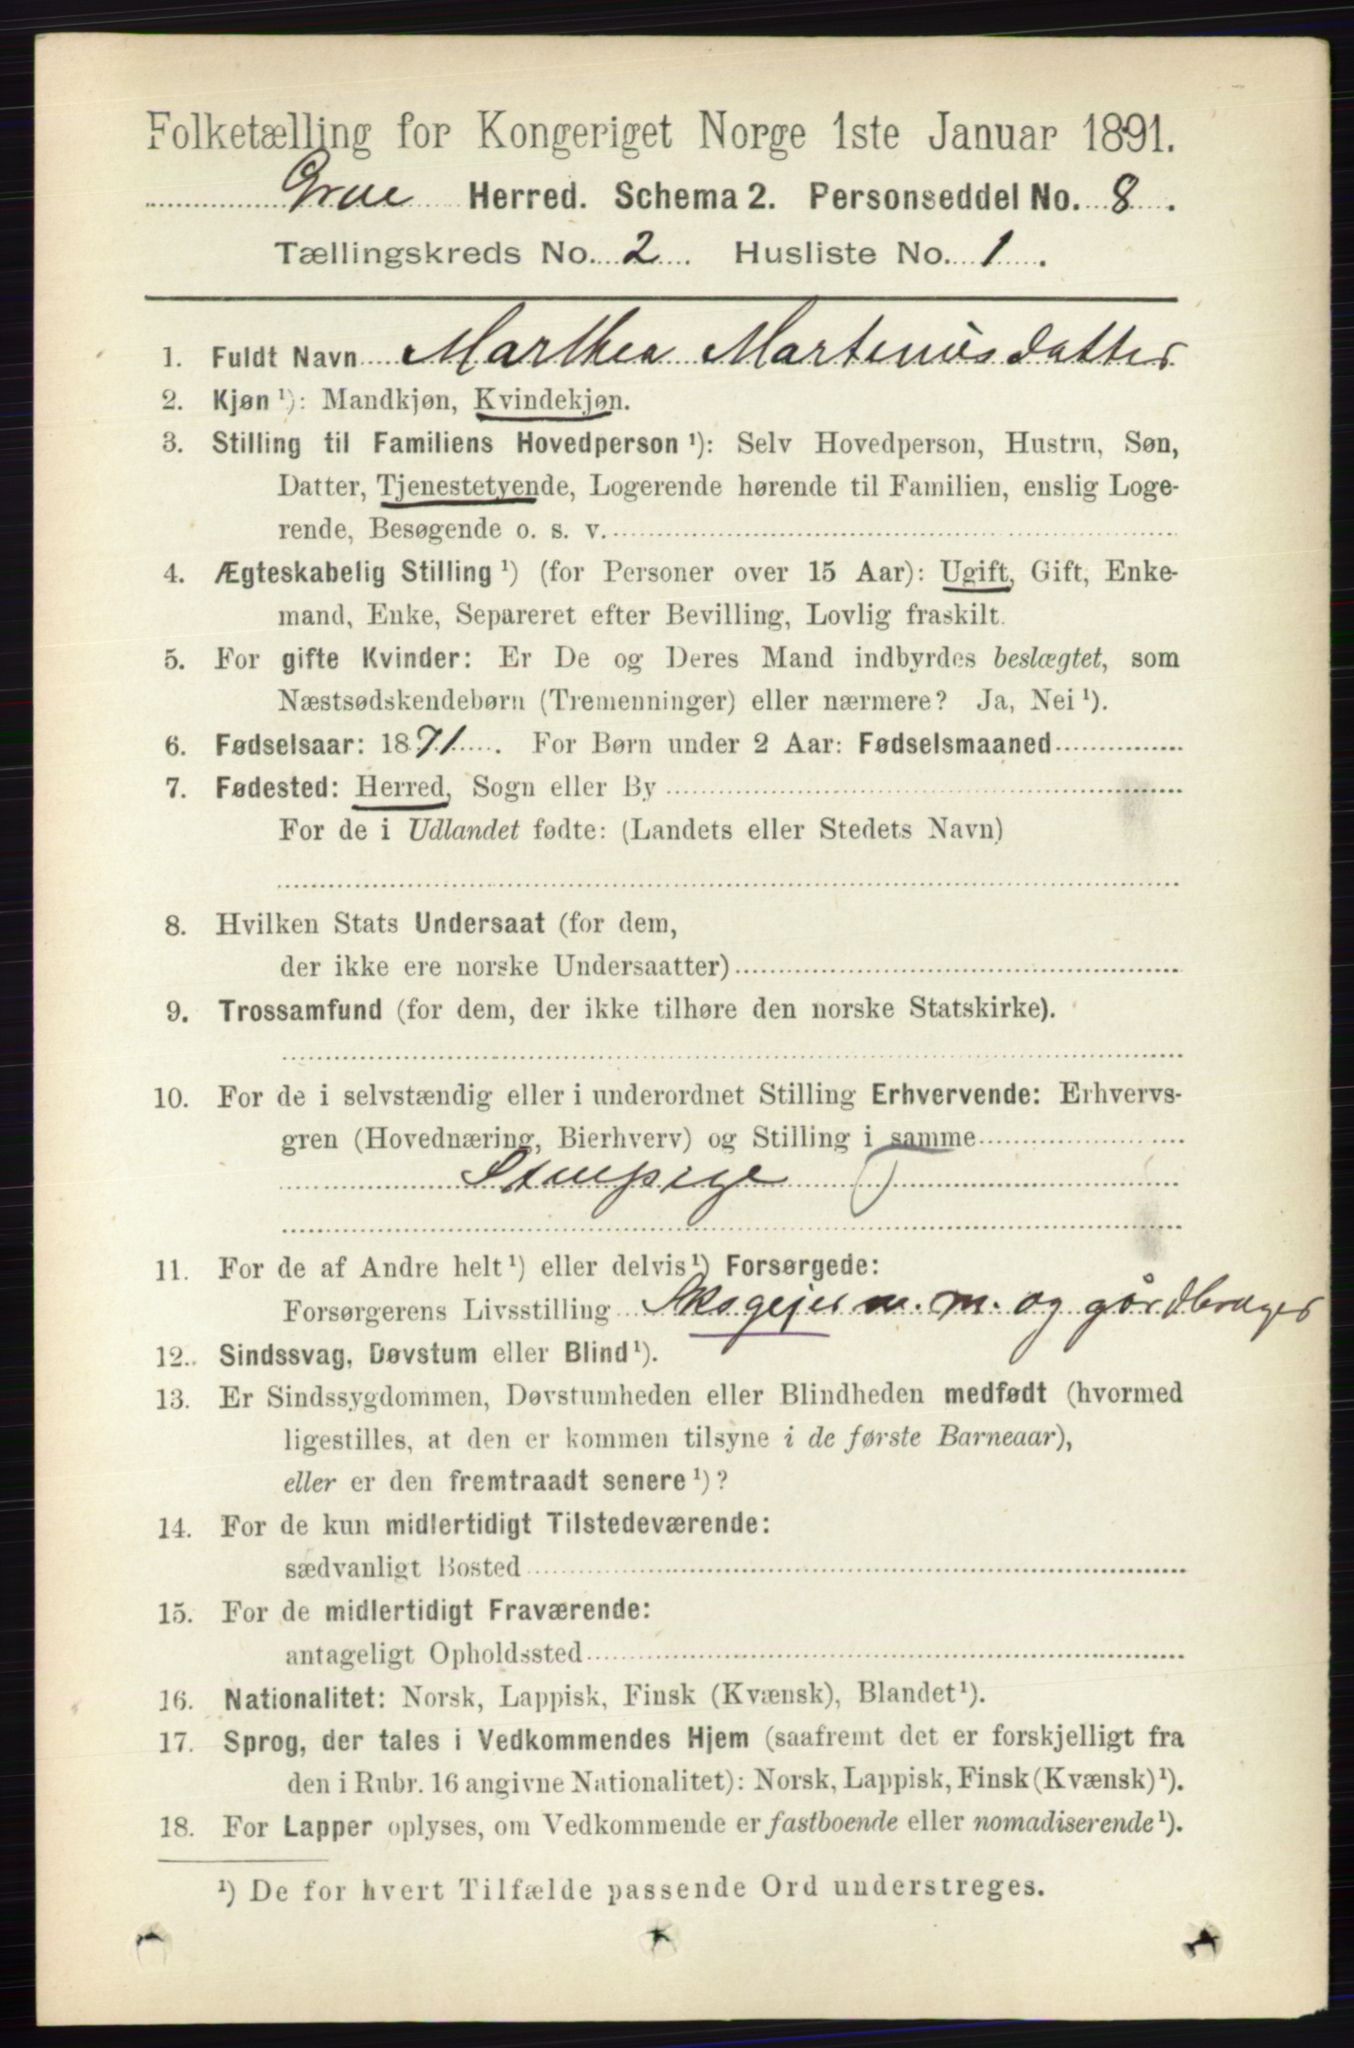 Folketælling for Kongeriget Norge 1ste Januar 1891.
Grue Herred. Schema 2. Personseddel No. 8.
Tællingskreds No. 2. Husliste No. 1.
1. Fuldt Navn Marthea Martinusdatter
2. Kjøn ¹): Mandkjøn, Kvindekjøn.
3. Stilling til Familiens Hovedperson ¹): Selv Hovedperson, Hustru, Søn,
Datter, Tjenestetyende, Logerende hørende til Familien, enslig Loge-
rende, Besøgende o. s. v.
4. Ægteskabelig Stilling ¹) (for Personer over 15 Aar): Ugift, Gift, Enke-
mand, Enke, Separeret efter Bevilling, Lovlig fraskilt.
5. For gifte Kvinder: Er De og Deres Mand indbyrdes beslægtet, som
Næstsødskendebørn (Tremenninger) eller nærmere? Ja, Nei ¹).
6. Fødselsaar: 1871. For Børn under 2 Aar: Fødselsmaaned
7. Fødested: Herred, Sogn eller By
For de i Udlandet fødte: (Landets eller Stedets Navn)
8. Hvilken Stats Undersaat (for dem,
der ikke ere norske Undersaatter)
9. Trossamfund (for dem, der ikke tilhøre den norske Statskirke).
10. For de i selvstændig eller i underordnet Stilling Erhvervende: Erhvervs-
gren (Hovednæring, Bierhverv) og Stilling i samme
Stuepige
11. For de af Andre helt ¹) eller delvis ¹) Forsørgede:
Forsørgerens Livsstilling Skogejer m. m. og gårdbruger
12. Sindssvag, Døvstum eller Blind ¹).
13. Er Sindssygdommen, Døvstumheden eller Blindheden medfødt (hvormed
ligestilles, at den er kommen tilsyne i de første Barneaar),
eller er den fremtraadt senere ¹)?
14. For de kun midlertidigt Tilstedeværende:
sædvanligt Bosted
15. For de midlertidigt Fraværende:
antageligt Opholdssted
16. Nationalitet: Norsk, Lappisk, Finsk (Kvænsk), Blandet ¹).
17. Sprog, der tales i Vedkommendes Hjem (saafremt det er forskjelligt fra
den i Rubr. 16 angivne Nationalitet): Norsk, Lappisk, Finsk (Kvænsk) ¹).
18. For Lapper oplyses, om Vedkommende er fastboende eller nomadiserende ¹).
¹) De for hvert Tilfælde passende Ord understreges.